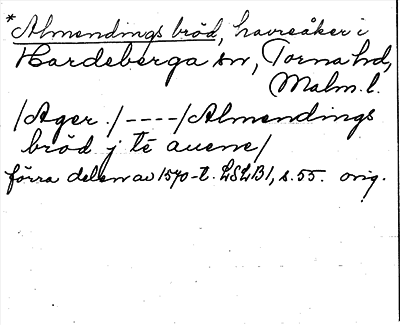 *Almendings bröd, havreåker i
Hardeberga sn, Torna hd,
Malm. l.
/Ager./----/Almendings
bröd j tê auene/
förra delen av 1570-t. LSLB1, s. 55. orig.